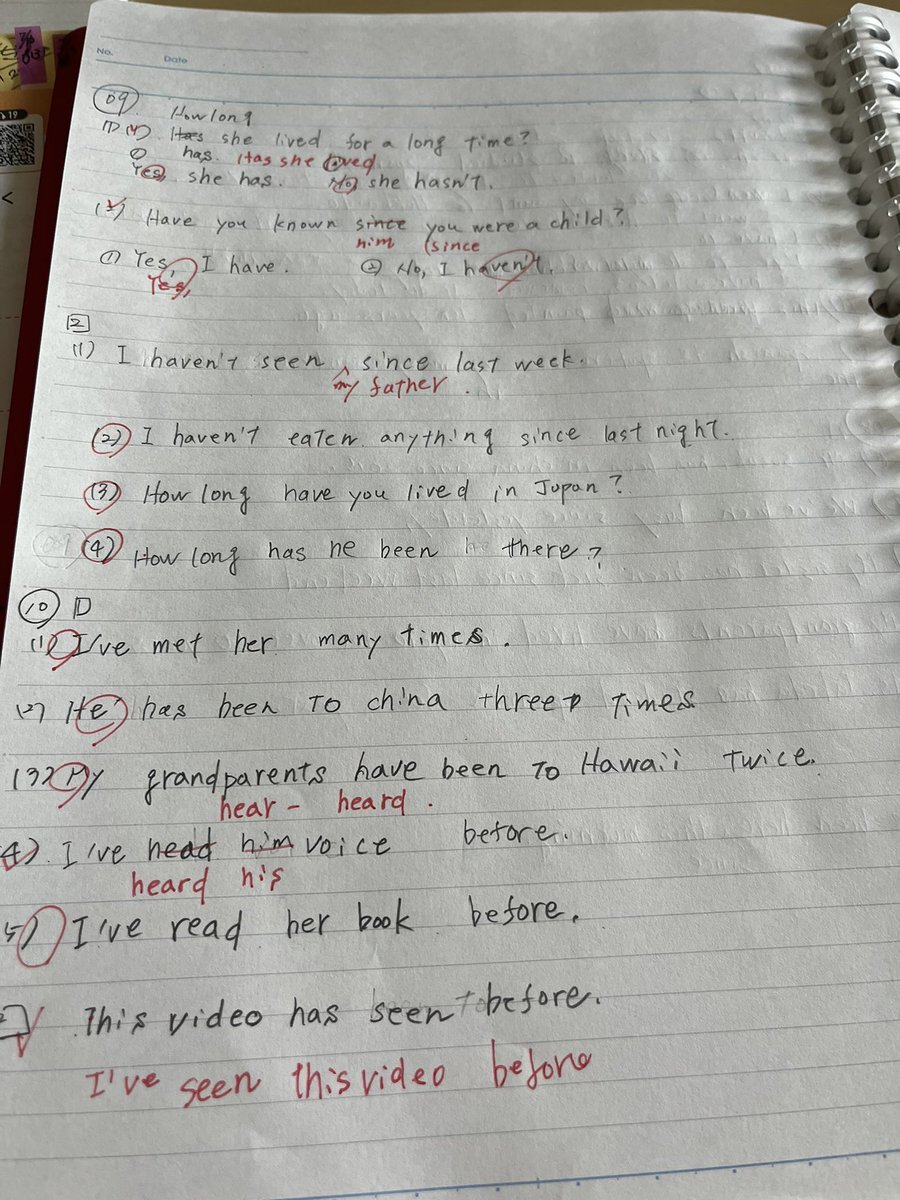 No.
Date
19
09
How long
(4) Has she lived for a long time?
has. Has she loved
Yes, she has. No, she hasn't.
Have you known since you were a child?
him (since
① Yes, I have. ② No, I haven't.
Yes,
2
(1) I haven't seen since last week.
my father.
(2) I haven't eaten anything since last night.
(3) How long have you lived in Japan?
(4) How long has he been there?
10 1
(1) I've met her many times.
(2) He has been to china three times
(3) My grandparents have been to Hawaii twice.
hear - heard.
4) I've head him voice before.
heard his
5) I've read her book before.
2 This video has seen before.
I've seen this video before